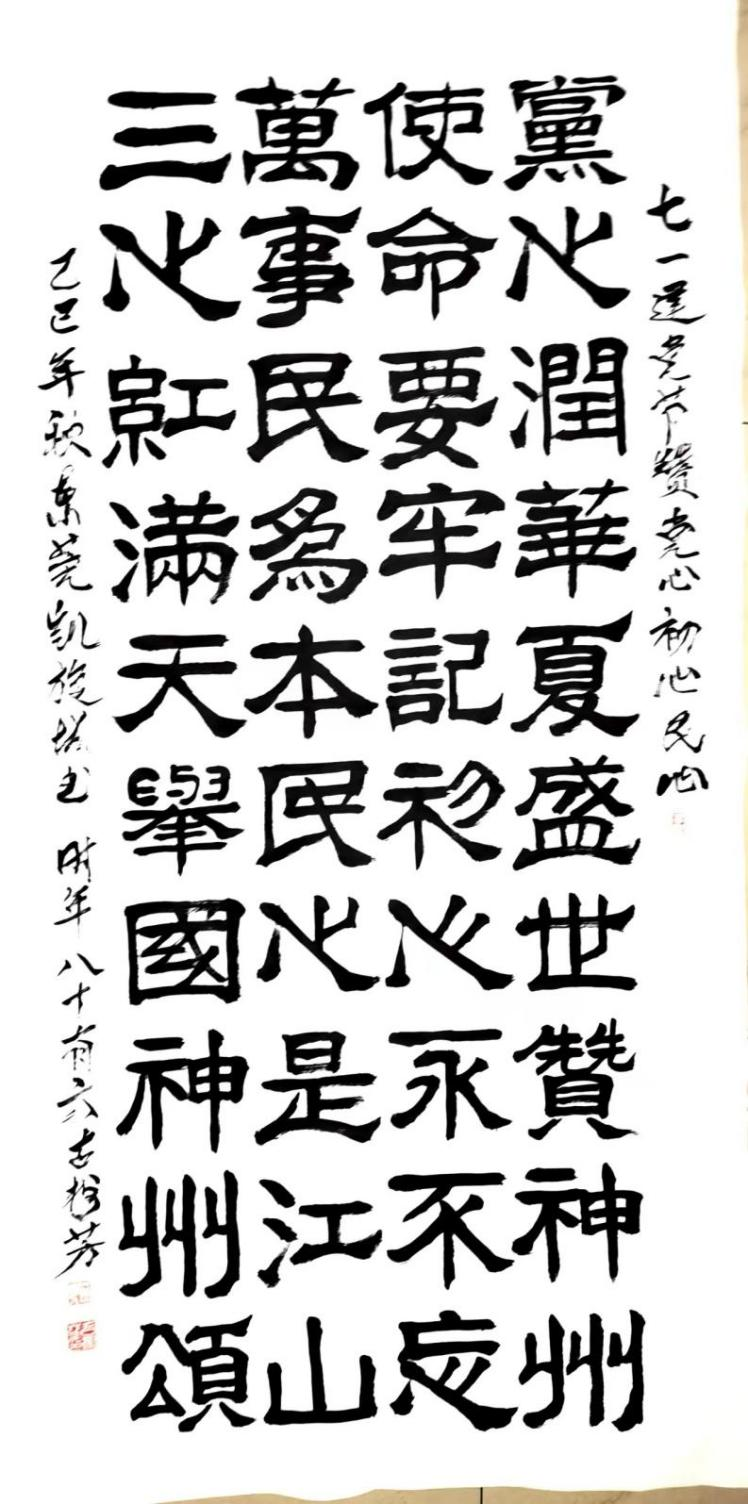 七一建党节贊党心初心民心
黨心潤華夏盛世贊神州
使命要牢記初心永不忘
萬事民為本民心是江山
三心紅滿天舉國神州頌
乙巳年秋东莞凱旋城书 时年八十有六